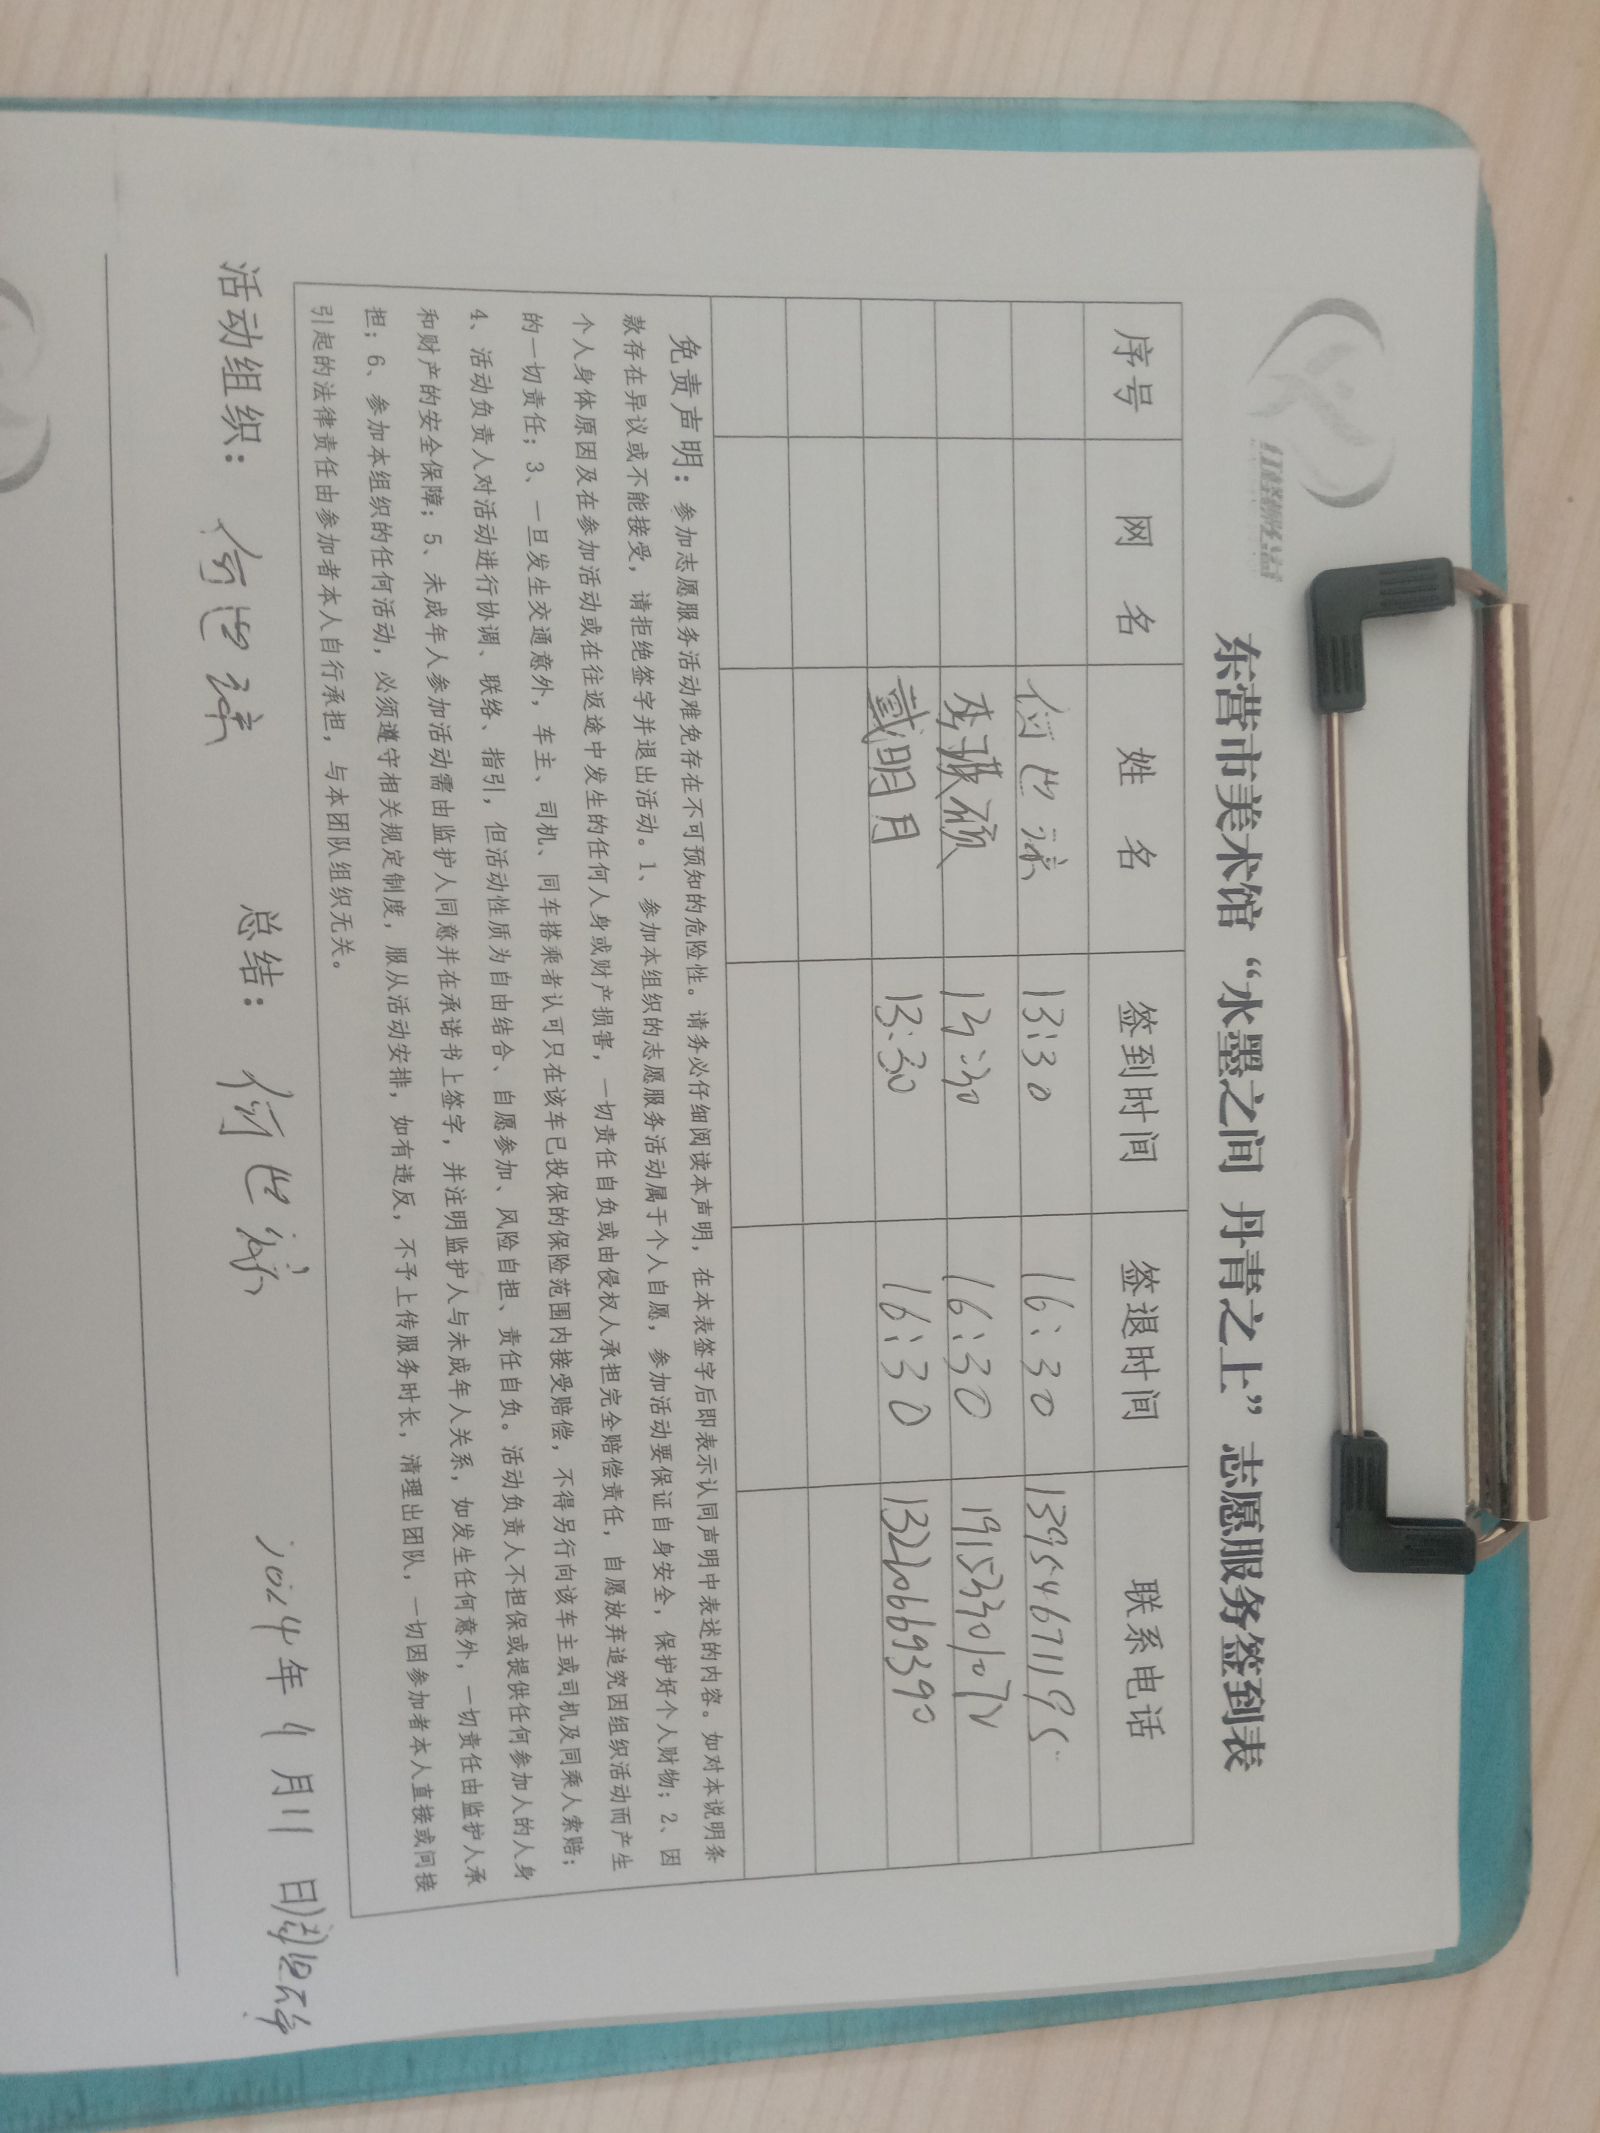 东营市美术馆“水墨之间 丹青之上”志愿服务签到表
序号 网 名 姓 名 签到时间 签退时间 联系电话
13:30 16:30 13954671195
李 硕 13:30 16:30 19153301072
戴明月 13:30 16:30 13220669390
免责声明：参加志愿服务活动难免存在不可预知的危险性。请务必仔细阅读本声明，在本表签字后即表示认同声明中表述的内容。如对本说明条
款存在异议或不能接受，请拒绝签字并退出活动。1、参加本组织的志愿服务活动属于个人自愿，参加活动要保证自身安全，保护好个人财物；2、因
个人身体原因及在参加活动或在往返途中发生的任何人身或财产损害，一切责任自负或由侵权人承担完全赔偿责任，自愿放弃追究因组织活动而产生
的一切责任；3、一旦发生交通意外，车主、司机、同车搭乘者认可只在该车已投保的保险范围内接受赔偿，不得另行向该车主或司机及同乘人索赔；
4、活动负责人对活动进行协调、联络、指引，但活动性质为自由结合、自愿参加、风险自担、责任自负。活动负责人不担保或提供任何参加人的人身
和财产的安全保障；5、未成年人参加活动需由监护人同意并在承诺书上签字，并注明监护人与未成年人关系，如发生任何意外，一切责任由监护人承
担；6、参加本组织的任何活动，必须遵守相关规定制度，服从活动安排，如有违反，不予上传服务时长，清理出团队，一切因参加者本人直接或间接
引起的法律责任由参加者本人自行承担，与本团队组织无关。
活动组织： 总结： 2024年9月11日